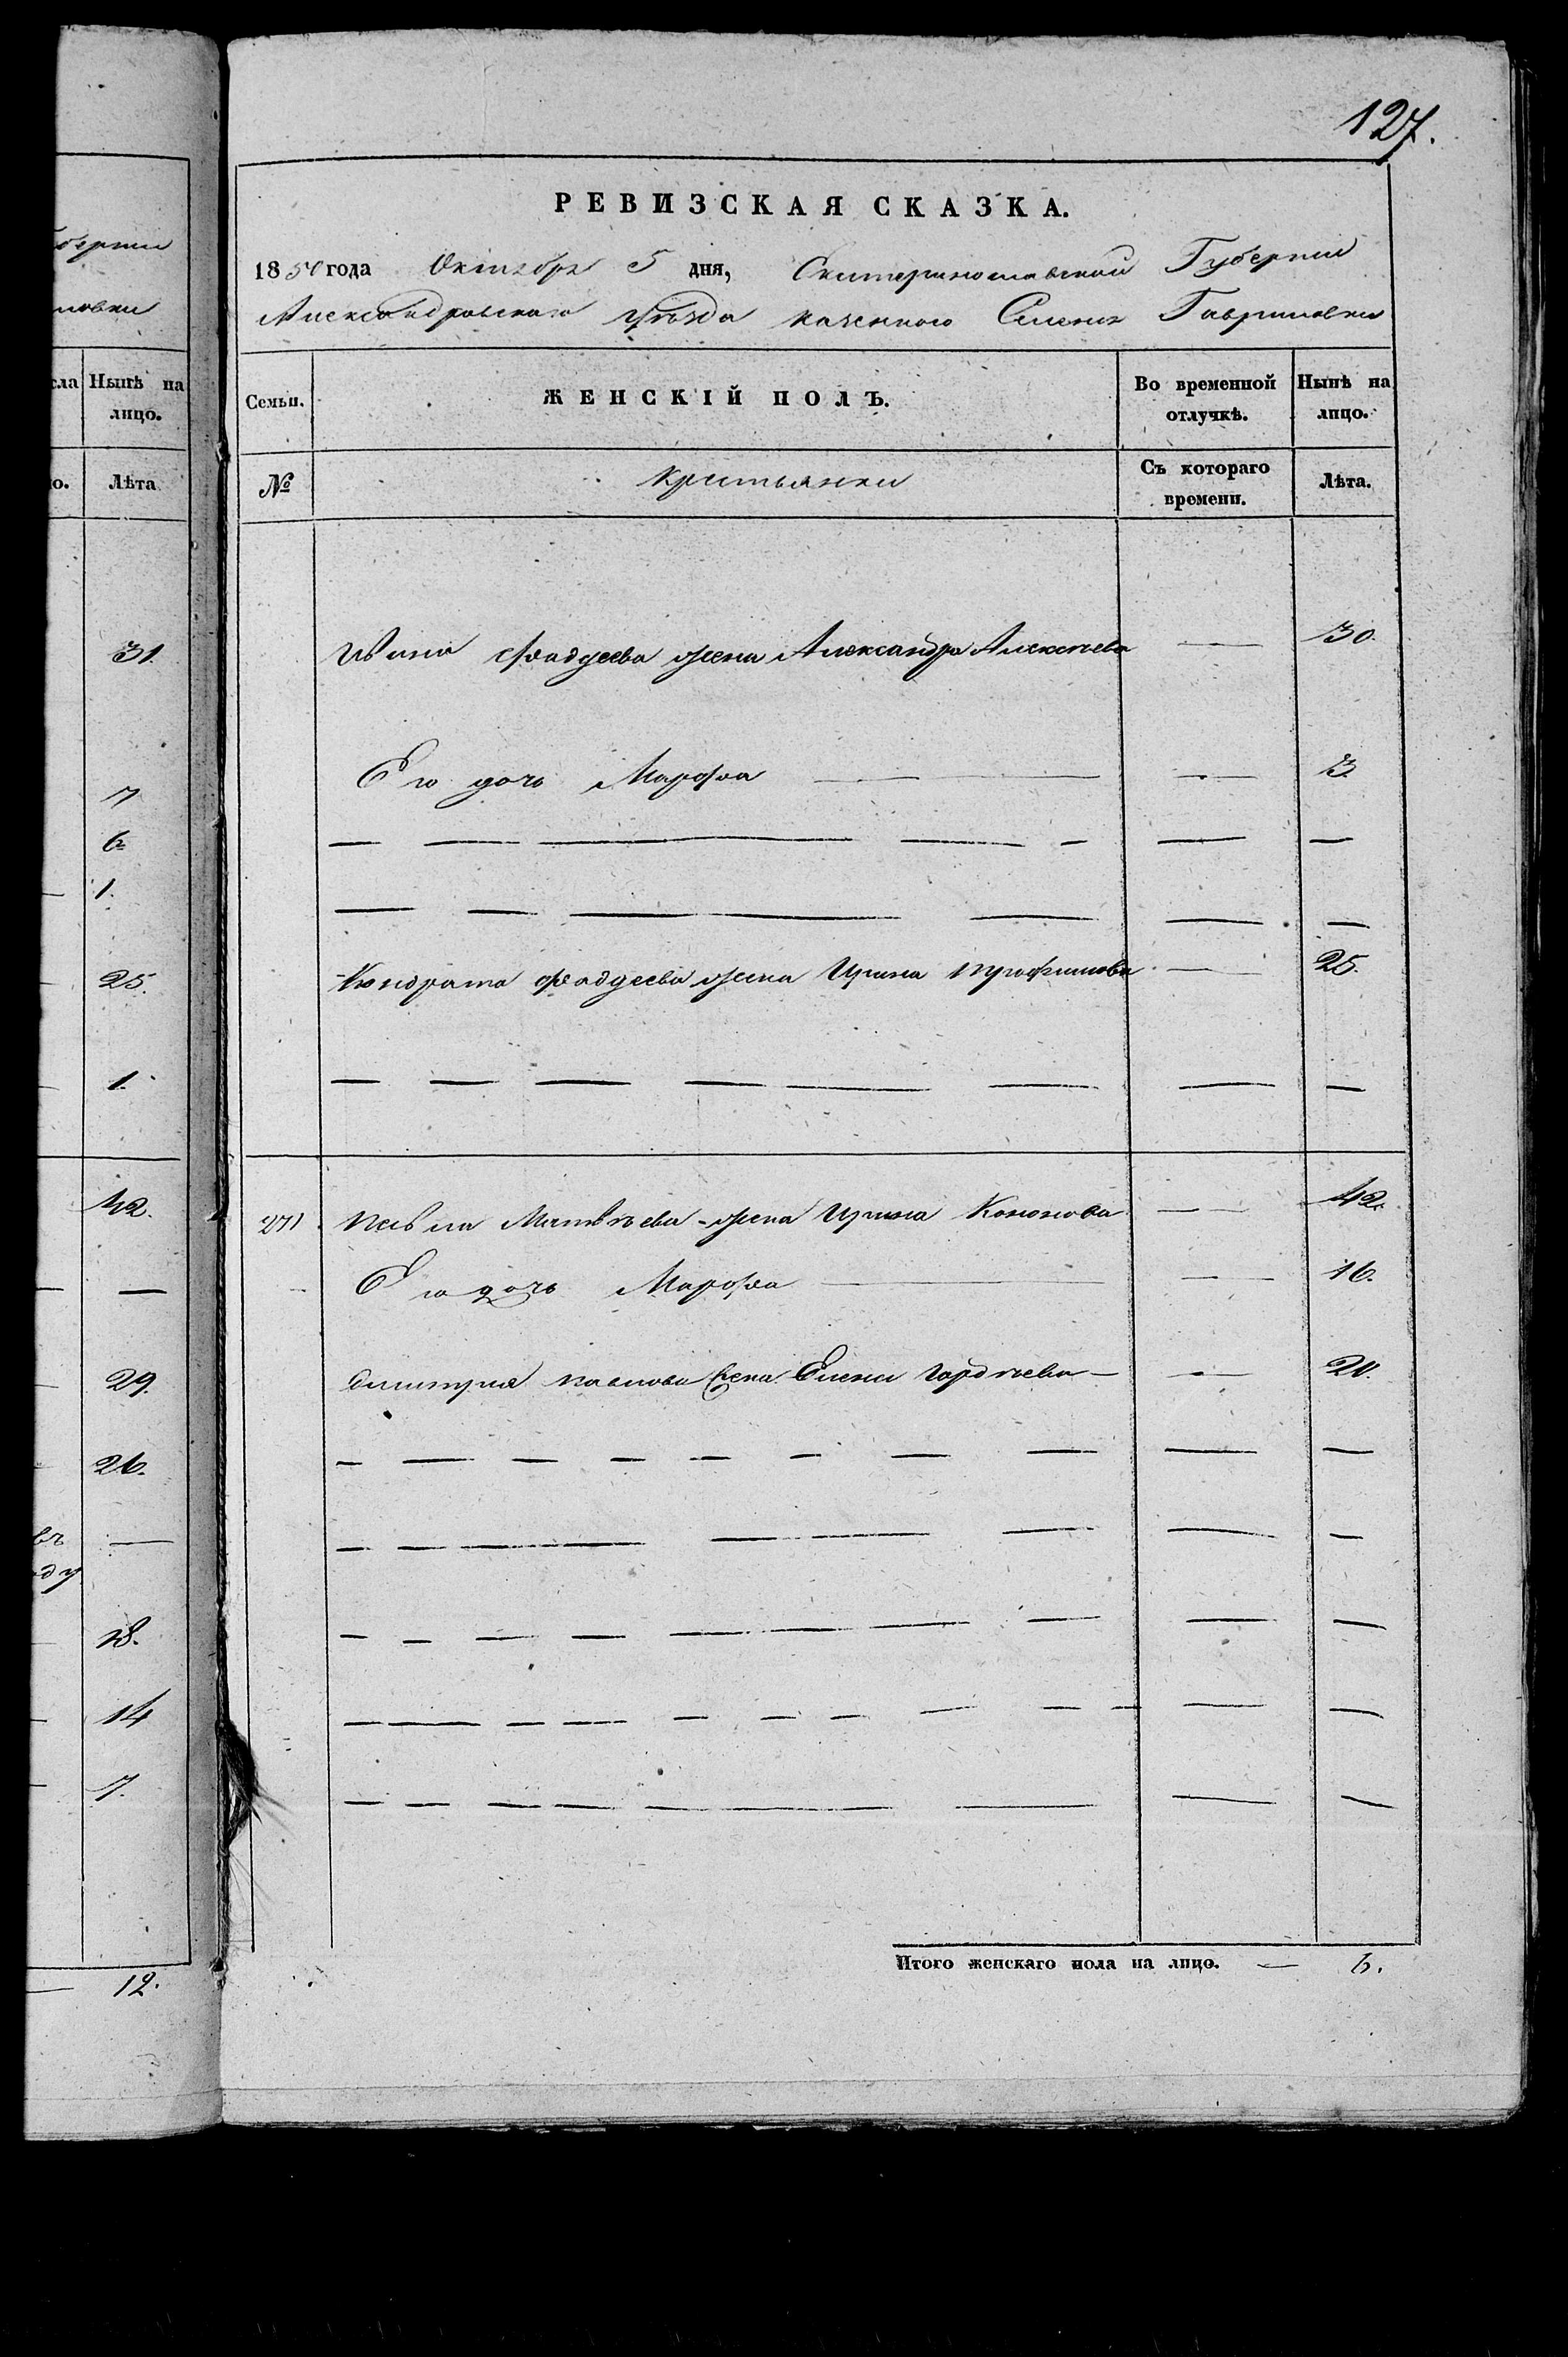 127.
РЕВИЗСКАЯ СКАЗКА.
1850 года Октября 5 дня, Екатеринославской Губернии
Александровскаго уѣзда казеннаго Селенія Гавриловки
губернии
ловки
сла Нынѣ на лицо.
Семьи. ЖЕНСКІЙ ПОЛЪ. Во временной отлучкѣ. Нынѣ на лицо.
о. Лѣта
№ Крестьянки Съ котораго времени. Лѣта.
31.
7
6
1.
25.
1.
42.
29.
26.
въ
ду
18.
14
7.
12.
Ивана Фадеева жена Александра Алексѣева — 30.
Его дочь Марфа — 3
Кондрата Фадеева жена Ирина Трофимова — 25.
271. Павла Матвѣева жена Ирина Кононова — 42.
Его дочь Марфа — 16.
Дмитрия Павлова жена Елена Гордѣева — 20.
Итого женскаго пола на лицо. — 6.